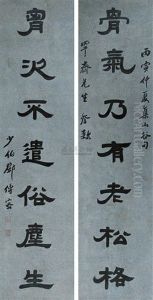 丙寅仲夏集山谷句
骨氣乃有老松格
齋先生
胷次不遣俗塵生
鄧傳密